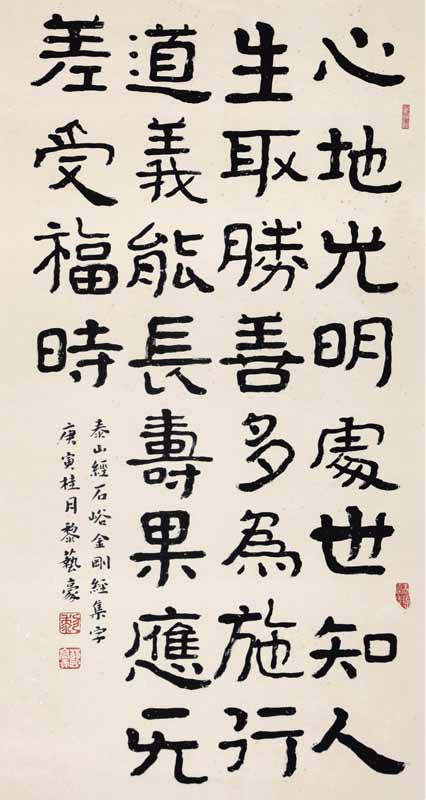 心地光明處世知人
生取勝善多為施行
道義能長壽果應无
差受福時
泰山經石峪金剛經集字
庚寅桂月黎藝豪